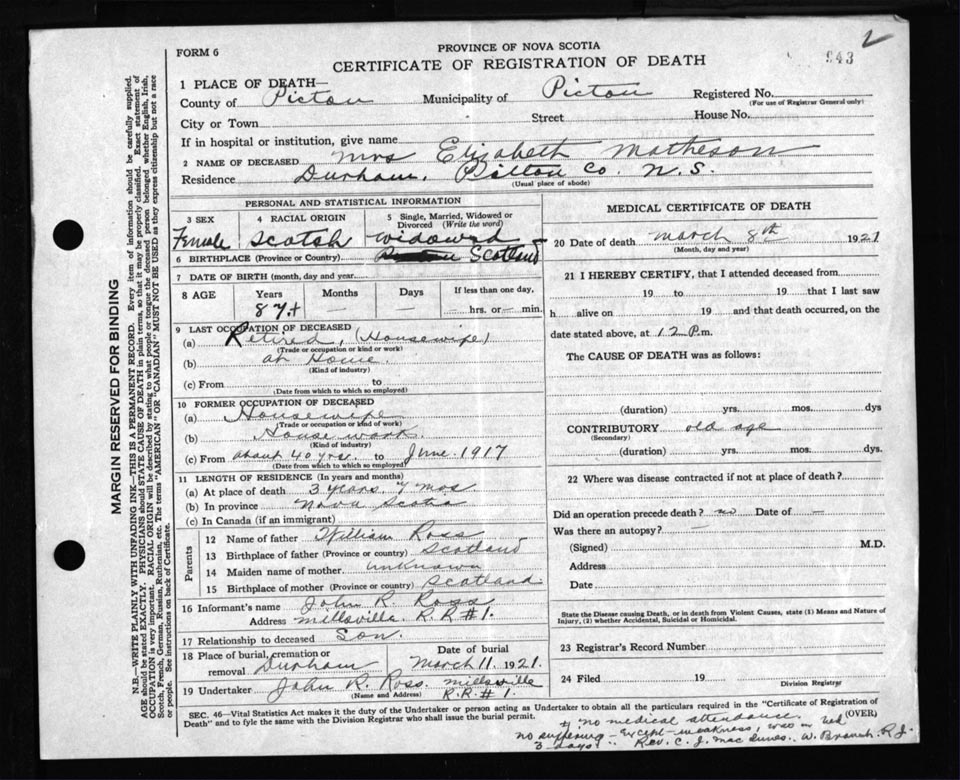 FORM 6
PROVINCE OF NOVA SCOTIA
CERTIFICATE OF REGISTRATION OF DEATH
943
2
1 PLACE OF DEATH—
County of Pictou Municipality of Pictou Registered No.
(For use of Registrar General only)
City or Town Street House No.
If in hospital or institution, give name
2 NAME OF DECEASED Mrs Elizabeth Matheson
Residence Durham, Pictou Co. N.S.
(Usual place of abode)
PERSONAL AND STATISTICAL INFORMATION
3 SEX 4 RACIAL ORIGIN 5 Single, Married, Widowed or Divorced (Write the word)
Female Scotsh widowed
6 BIRTHPLACE (Province or Country) Scotland
7 DATE OF BIRTH (month, day and year)
8 AGE Years Months Days If less than one day,
87+ — — hrs. or — min.
9 LAST OCCUPATION OF DECEASED
(a) Retired, (Housewife)
(Trade or occupation or kind of work)
(b) at Home.
(Kind of industry)
(c) From to
(Date from which to which so employed)
10 FORMER OCCUPATION OF DECEASED
(a) Housewife
(Trade or occupation or kind of work)
(b) House work.
(Kind of industry)
(c) From about 40 yrs. to June. 1917
(Date from which to which so employed)
11 LENGTH OF RESIDENCE (In years and months)
(a) At place of death 3 years, 7 mos
(b) In province Nova Scotia
(c) In Canada (if an immigrant)
Parents
12 Name of father William Ross
13 Birthplace of father (Province or country) Scotland
14 Maiden name of mother. unknown
15 Birthplace of mother (Province or country) Scotland
16 Informant's name John R. Ross
Address Millsville. R.R #1.
17 Relationship to deceased Son.
18 Place of burial, cremation or removal Durham Date of burial March 11. 1921.
19 Undertaker John R. Ross. Millsville R.R. # 1.
(Name and Address)
MEDICAL CERTIFICATE OF DEATH
20 Date of death March 8th 1921
(Month, day and year)
21 I HEREBY CERTIFY, that I attended deceased from
19 to 19 that I last saw
h alive on 19 and that death occurred, on the
date stated above, at 12 P.m.
The CAUSE OF DEATH was as follows:
(duration) yrs. mos. dys
CONTRIBUTORY old age
(Secondary)
(duration) yrs. mos. dys.
22 Where was disease contracted if not at place of death?
Did an operation precede death? no Date of —
Was there an autopsy? —
(Signed) M.D.
Address
Date
State the Disease causing Death, or in death from Violent Causes, state (1) Means and Nature of Injury, (2) whether Accidental, Suicidal or Homicidal.
23 Registrar's Record Number
24 Filed 19
Division Registrar
SEC. 46—Vital Statistics Act makes it the duty of the Undertaker or person acting as Undertaker to obtain all the particulars required in the "Certificate of Registration of
Death" and to fyle the same with the Division Registrar who shall issue the burial permit. (OVER)
no medical attendance.
no suffering – except – weakness, was in bed
3 days. Rev. C. J. Mac Innes. W. Branch. R.J.
MARGIN RESERVED FOR BINDING
N.B.—WRITE PLAINLY WITH UNFADING INK—THIS IS A PERMANENT RECORD. Every item of information should be carefully supplied.
AGE should be stated EXACTLY. PHYSICIANS should STATE CAUSE OF DEATH in plain terms, so that it may be properly classified. Exact statement of
OCCUPATION is very important. RACIAL ORIGIN will be described by stating to what people or tongue the deceased person belonged whether English, Irish,
Scotch, French, German, Russian, Ruthenian, etc. The terms "AMERICAN" OR "CANADIAN" MUST NOT BE USED as they express citizenship but not a race
or people. See instructions on back of Certificate.